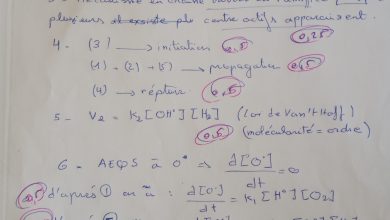 plusieurs et existe plo centre actifs apparaissent.
0,25
4 - (3) → initiation 0,5
(1) + (2) + (5) → propagation 0,5
(4) → rupture 0,5
5 - V₂ = K₂[OH°][H₂] (Loi de Van't Hoff)
0,5 (molécularité = ordre)
6 - AEQS à O° ⇒ d[O°]/dt = 0
0,5 d'après ① on a : d[O°]/dt = K₁[H°][O₂]